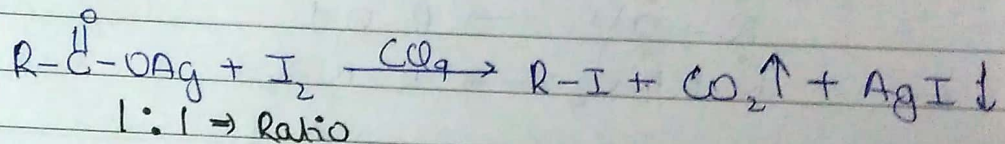 O
R-C-OAg + I₂ CCl₄→ R-I + CO₂↑ + AgI↓
1:1 ⇒ Ratio